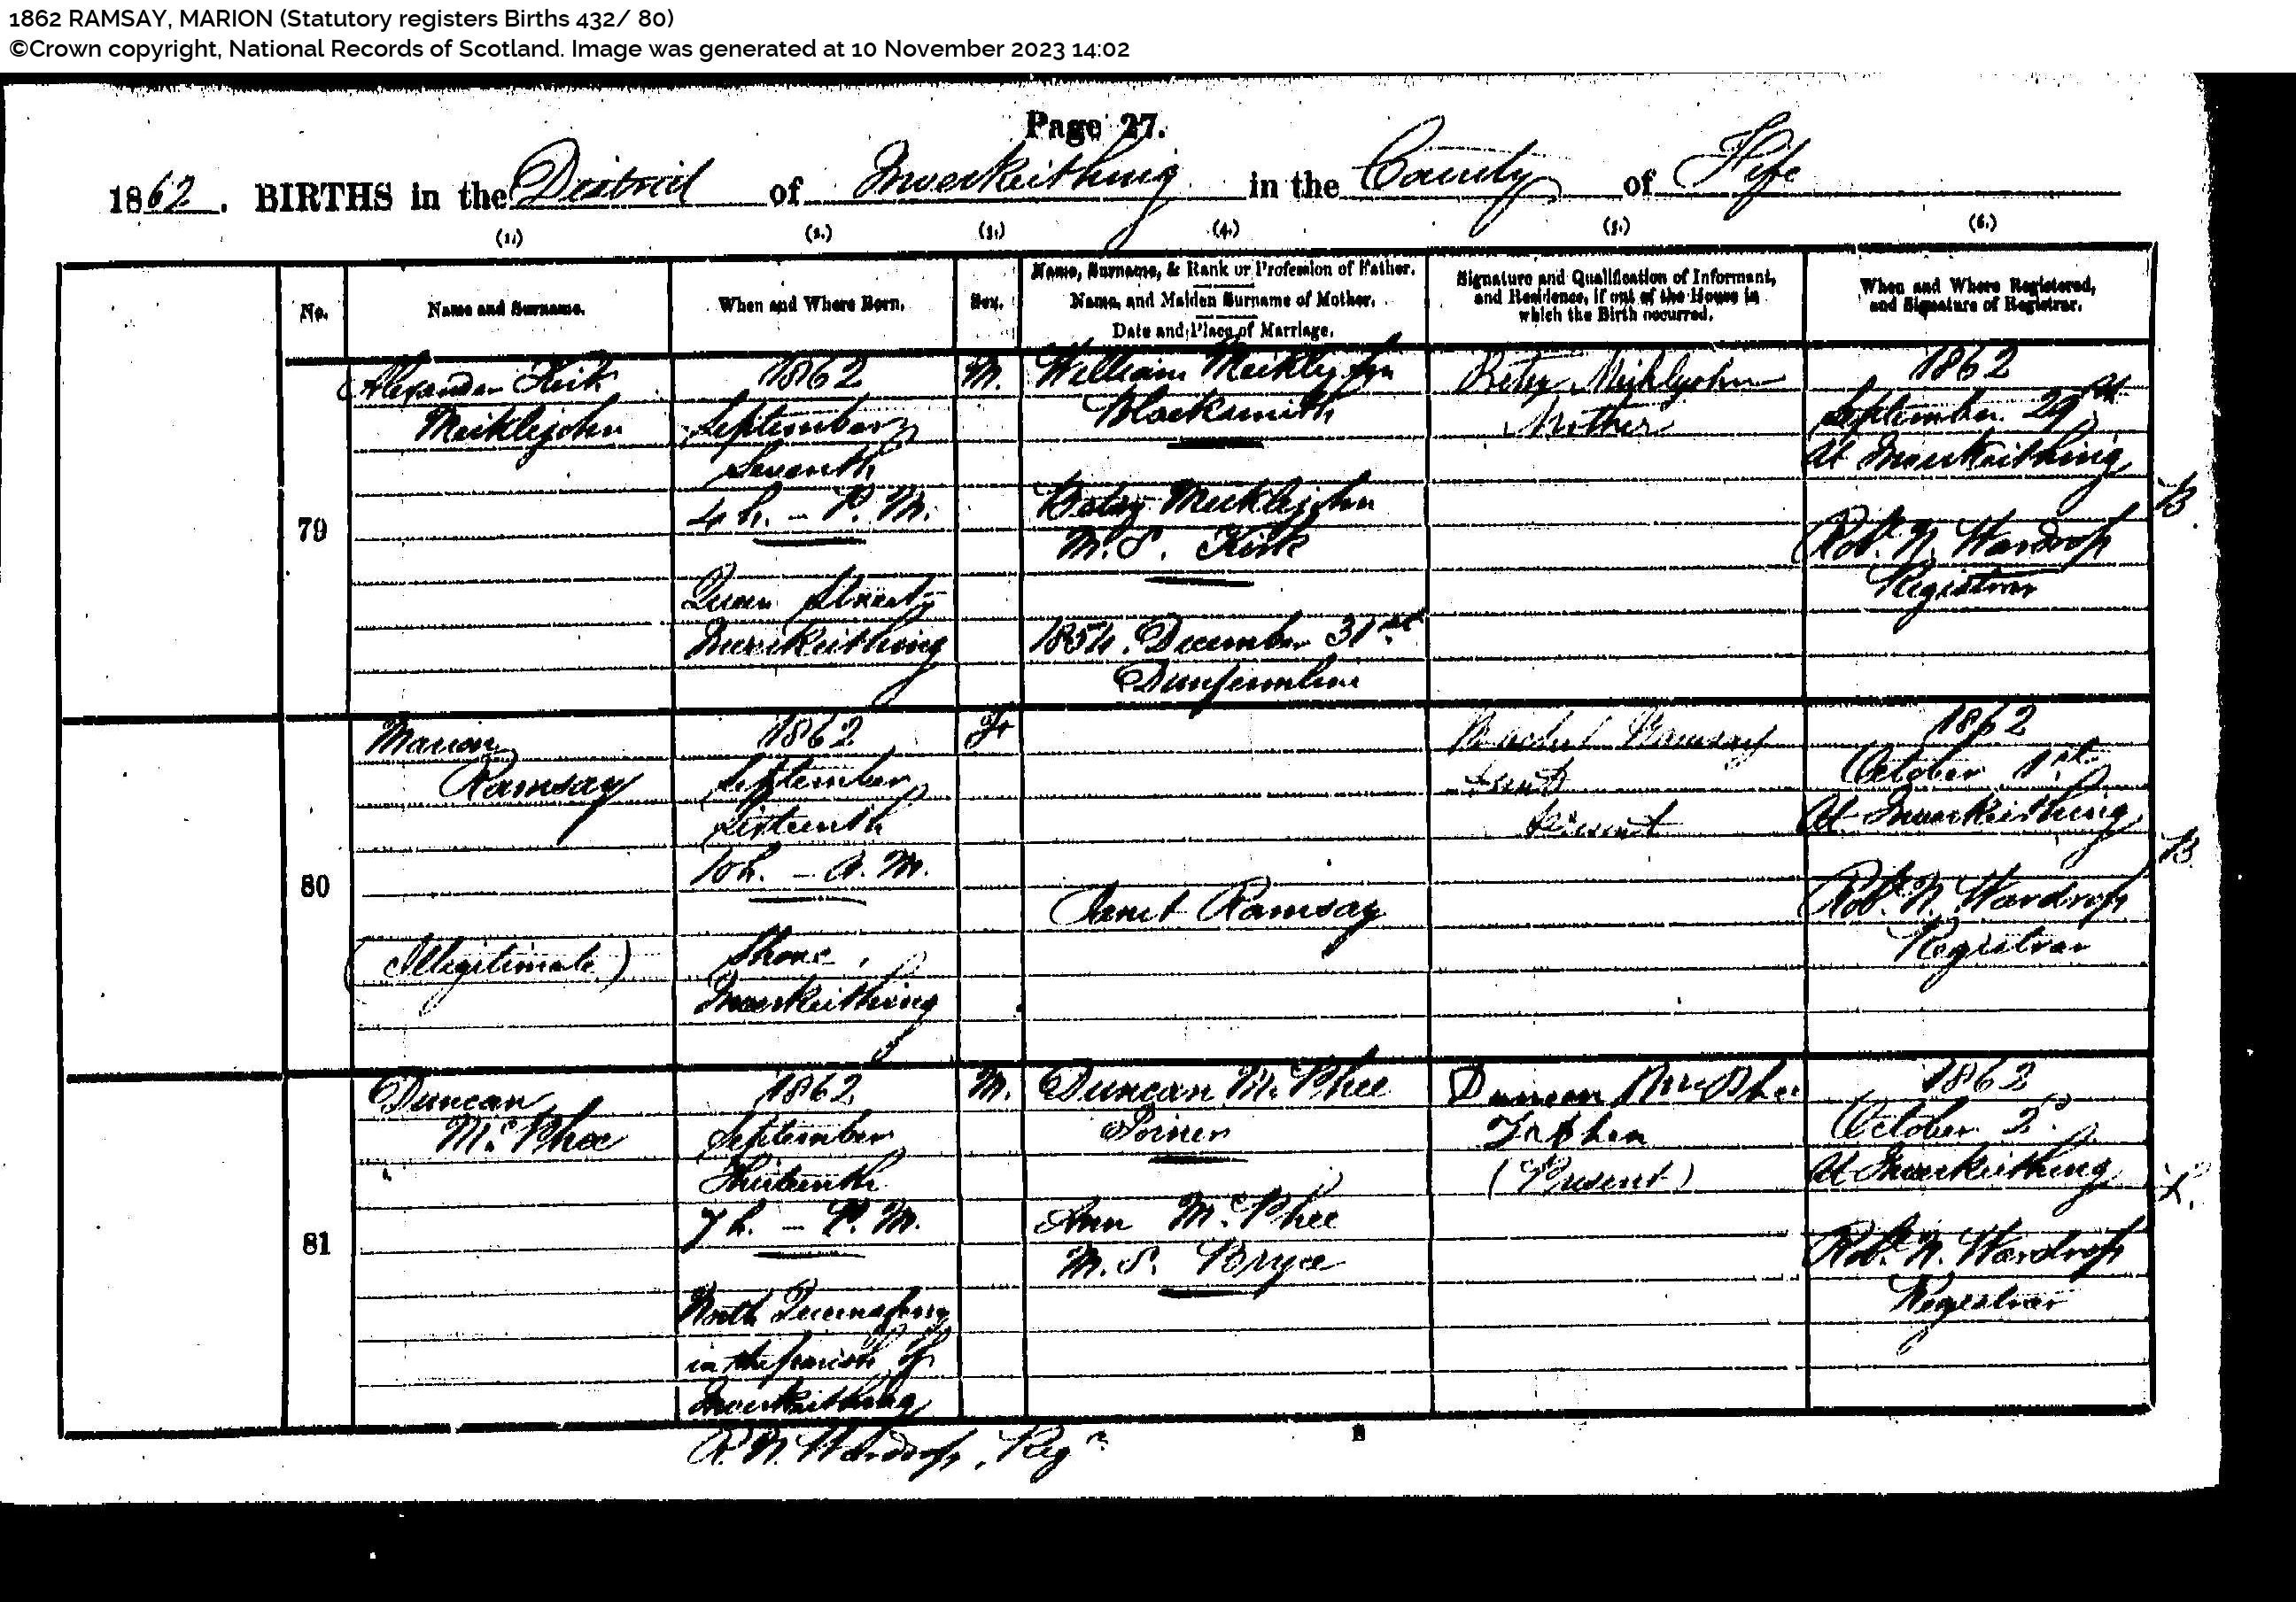 1862 RAMSAY, MARION (Statutory registers Births 432/ 80)
©Crown copyright, National Records of Scotland. Image was generated at 10 November 2023 14:02
Page 27.
1862. BIRTHS in the District of Inverkeithing in the County of Fife
(1.) (2.) (3.) (4.) (5.) (6.)
No.
Name and Surname.
When and Where Born.
Sex.
Name, Surname, & Rank or Profession of Father.
Name, and Maiden Surname of Mother.
Date and Place of Marriage.
Signature and Qualification of Informant,
and Residence, if out of the House in
which the Birth occurred.
When and Where Registered,
and Signature of Registrar.
79
Alexander Kirk
Meiklejohn
1862
September
Seventh
4 h. - P. M.
Queen Street
Inverkeithing
M.
William Meiklejohn
Blacksmith
Betsy Meiklejohn
M. S. Kirk
1854. December 31st
Dunfermline
Betsy Meiklejohn
Mother
1862
September 29th
At Inverkeithing
Robt. N. Wardrop
Registrar
B.
80
Marion
Ramsay
(Illegitimate)
1862
September
Sixteenth
10 h. - A. M.
Shore,
Inverkeithing
F.
Janet Ramsay
Ramsay
Present
1862
October 1st
At Inverkeithing
Robt. N. Wardrop
Registrar
B
81
Duncan
McPhee
1862
September
Thirteenth
7 h. - P. M.
North Queensferry
in the parish of
Inverkeithing
M.
Duncan McPhee
Joiner
Ann McPhee
M. S. Bryce
Duncan McPhee
Father
(Present)
1862
October 2d.
At Inverkeithing
Robt. N. Wardrop
Registrar
R. N. Wardrop, Regr